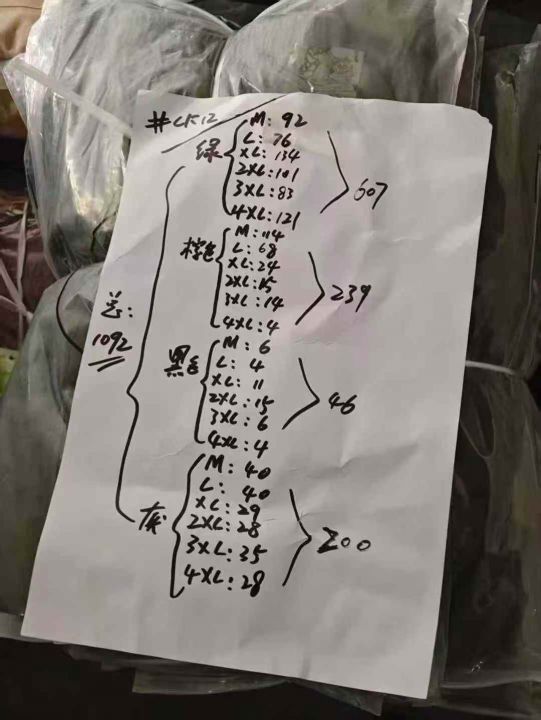 #CK12
绿
M: 92
L: 76
XL: 134
2XL: 101
3XL: 83
4XL: 121
607
棕色
M: 114
L: 68
XL: 24
2XL: 15
3XL: 14
4XL: 4
239
黑色
M: 6
L: 4
XL: 11
2XL: 15
3XL: 6
4XL: 4
46
灰
M: 40
L: 40
XL: 29
2XL: 28
3XL: 35
4XL: 28
200
总:
1092